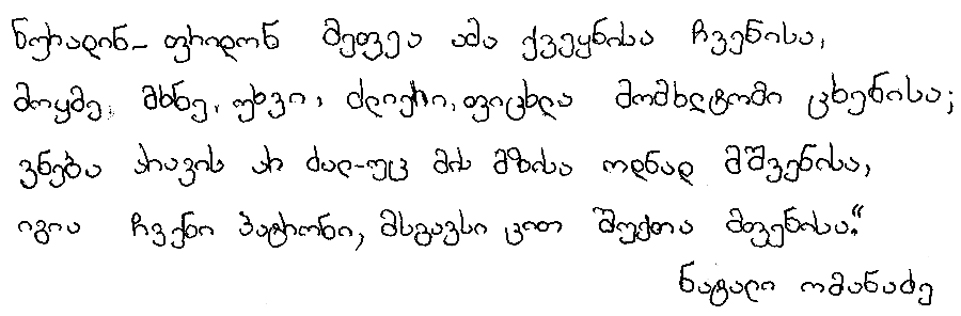 ნურადინ-ფრიდონ მეფეა ამა ქვეყნისა ჩვენისა,
მოყმე, მხნე, უხვი, ძლიერი, ფიცხლა მომხლტომი ცხენისა;
ვნება არავის არ ძალ-უც მის მზისა ოდნად მშვენისა,
იგია ჩვენი პატრონი, მსგავსი ცით შუქთა მფენისა.“
ნატალი ომანაძე